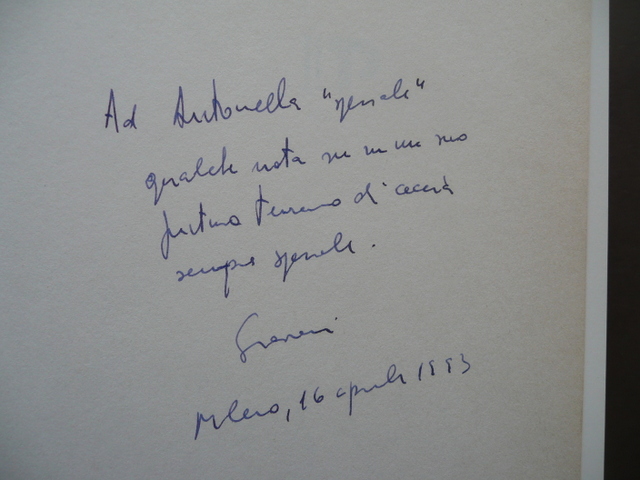 Ad Antonella "speciale"
qualche nota su un suo
futuro terreno di caccia
sempre speciale.
Milano, 16 aprile 1993